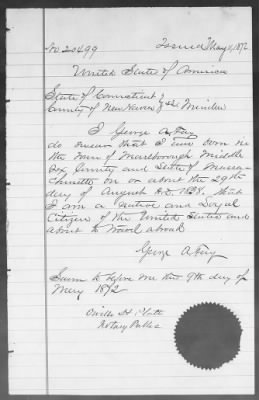 No 20499 Issued May 11, 1872
United States of America
State of Connecticut }
County of New Haven } ss Meriden
I George A Fay
do swear that I was born in
the Town of Marlborough Middle
sex County and State of Massa
chusetts on or about the 29th
day of August A.D. 1838. that
I am a Native and Loyal
Citizen of the United States and
about to travel abroad
George A Fay
Sworn to before me this 9th day of
May 1872
Orville H Platt
Notary Public